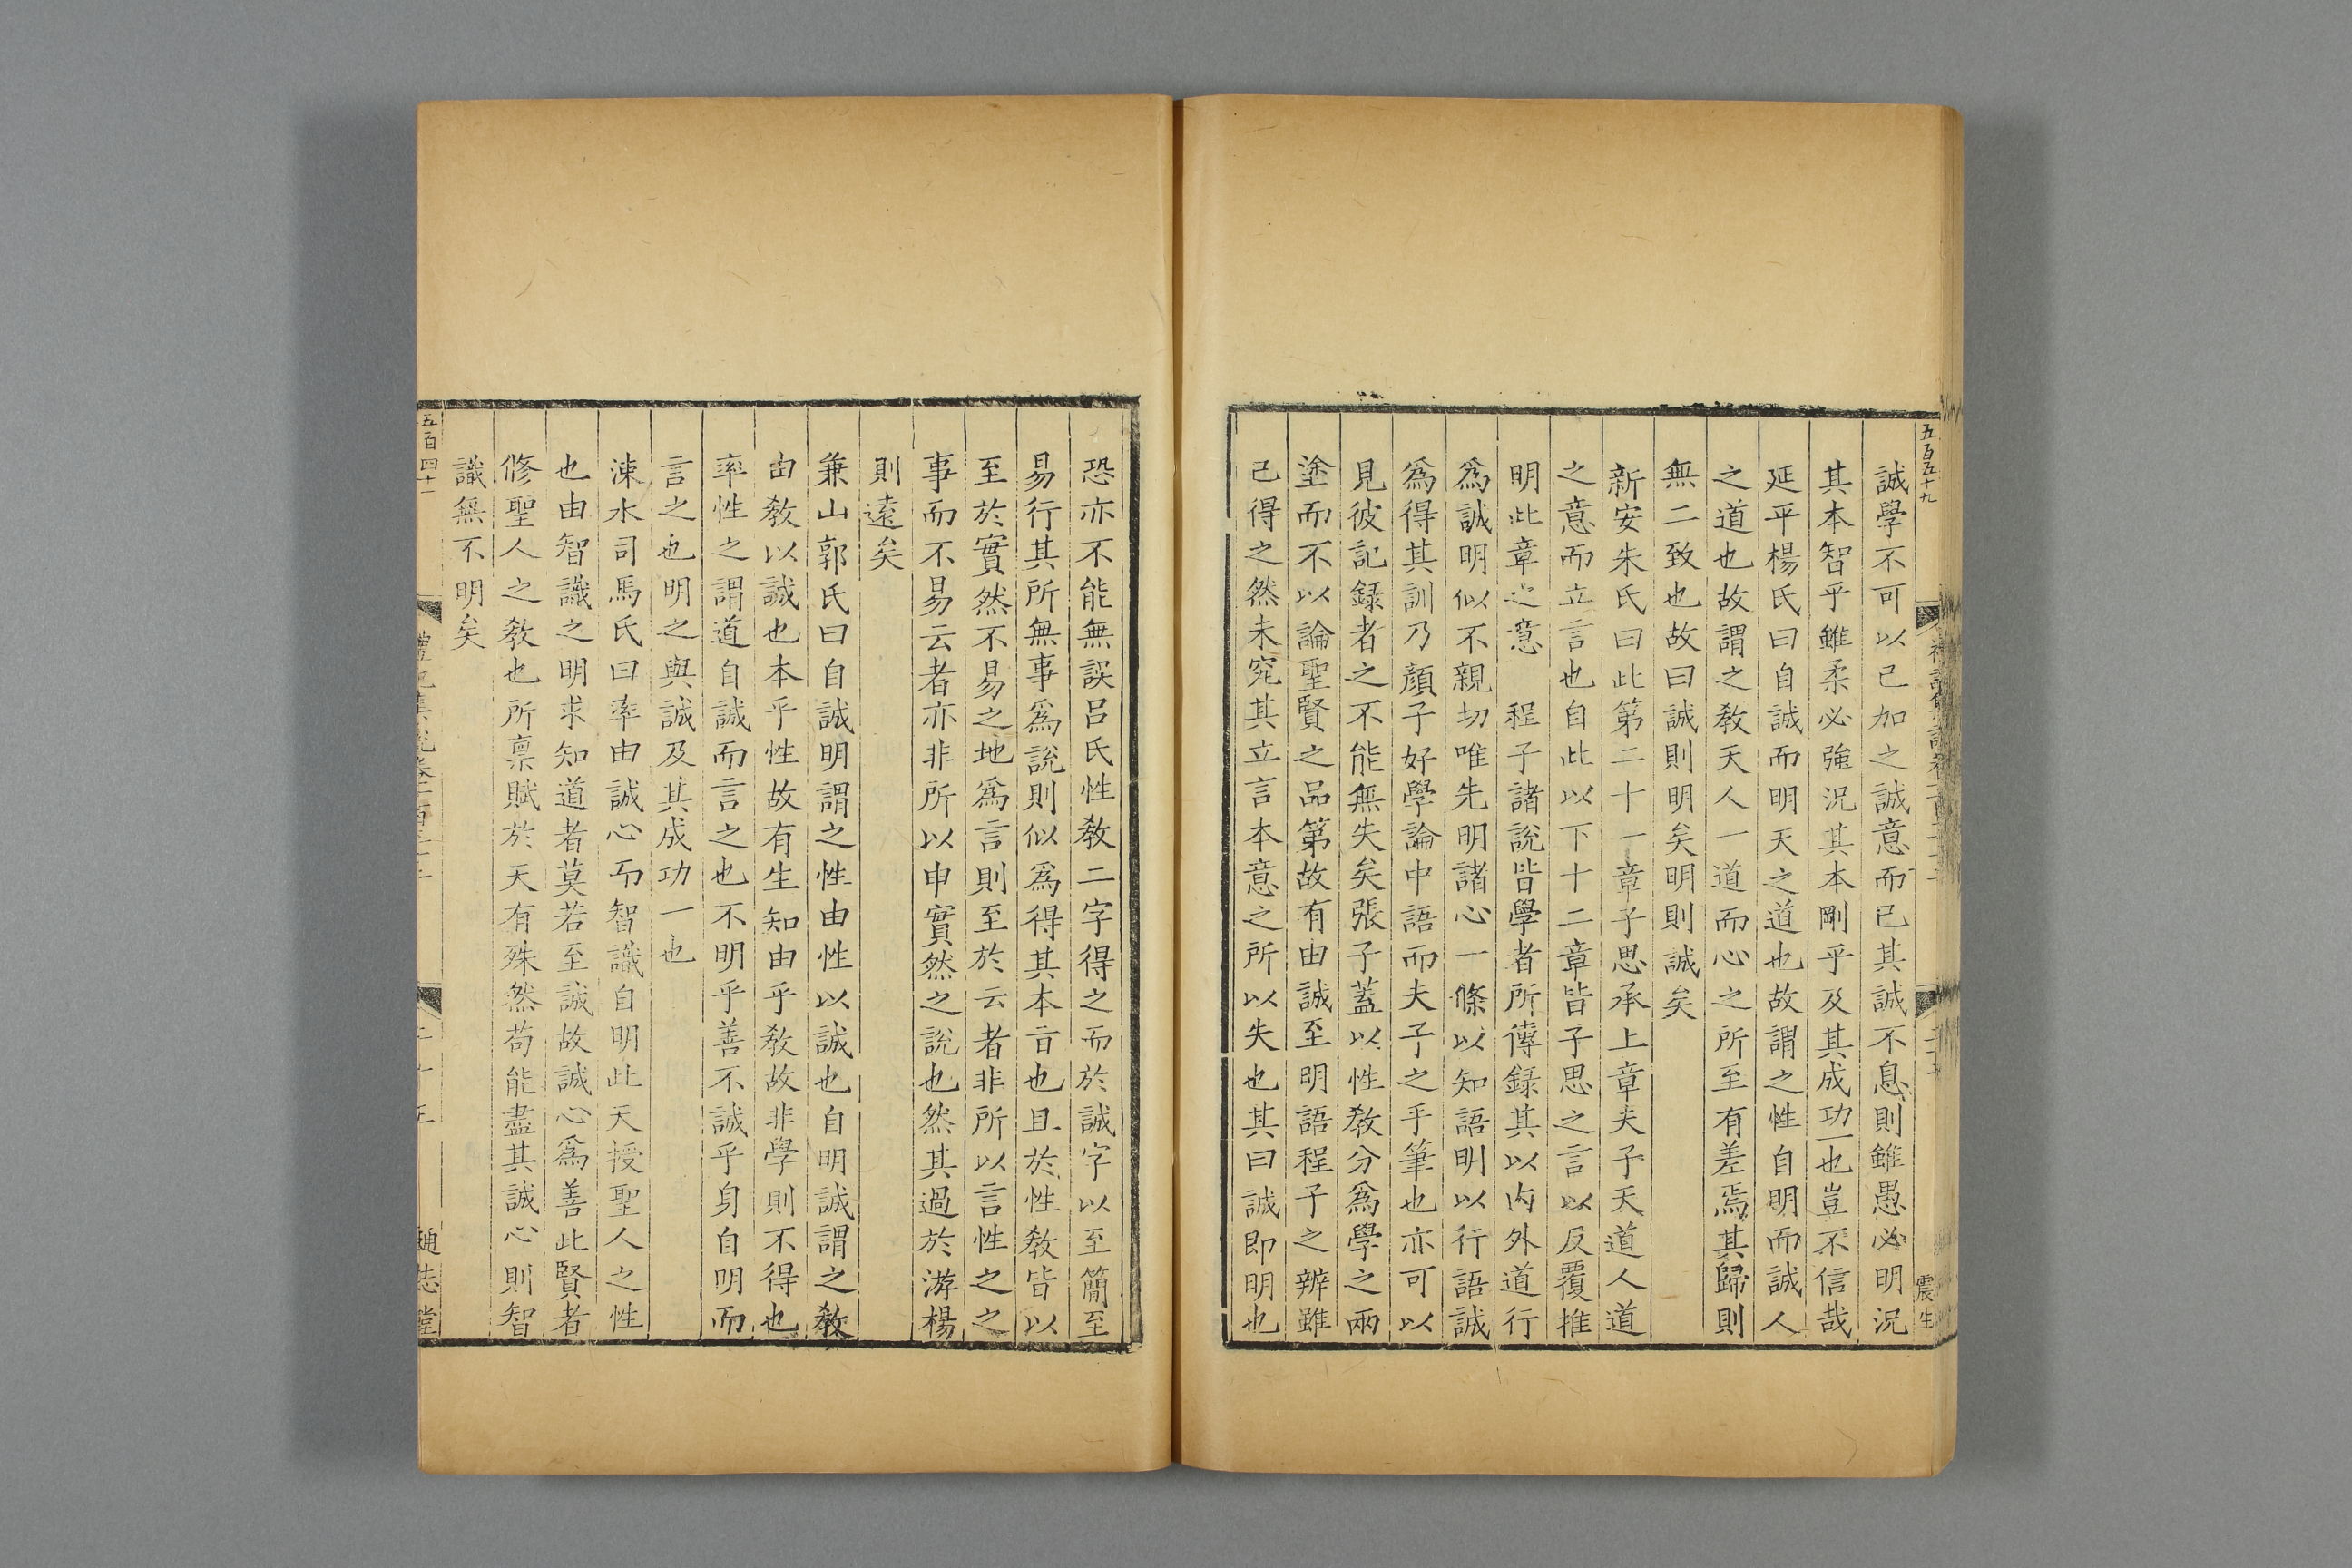 五百五十九
震生
誠學不可以已加之誠意而已其誠不息則雖愚必明況
其本智乎雖柔必強況其本剛乎及其成功一也豈不信哉
延平楊氏曰自誠而明天之道也故謂之性自明而誠人
之道也故謂之教天人一道而心之所至有差焉其歸則
無二致也故曰誠則明矣明則誠矣
新安朱氏曰此第二十一章子思承上章夫子天道人道
之意而立言也自此以下十二章皆子思之言以反覆推
明此章之意 程子諸說皆學者所傳録其以内外道行
爲誠明似不親切唯先明諸心一條以知語明以行語誠
爲得其訓乃顏子好學論中語而夫子之手筆也亦可以
見彼記録者之不能無失矣張子蓋以性教分爲學之兩
塗而不以論聖賢之品第故有由誠至明語程子之辨雖
已得之然未究其立言本意之所以失也其曰誠即明也
恐亦不能無誤吕氏性教二字得之而於誠字以至簡至
易行其所無事爲説則似爲得其本旨也且於性教皆以
至於實然不易之地爲言則至於云者非所以言性之之
事而不易云者亦非所以申實然之說也然其過於游楊
則遠矣
兼山郭氏曰自誠明謂之性由性以誠也自明誠謂之教
由教以誠也本乎性故有生知由乎教故非學則不得也
率性之謂道自誠而言之也不明乎善不誠乎身自明而
言之也明之與誠及其成功一也
涑水司馬氏曰率由誠心而智識自明此天授聖人之性
也由智識之明求知道者莫若至誠故誠心爲善此賢者
修聖人之教也所禀賦於天有殊然苟能盡其誠心則智
識無不明矣
五百四十一
通志堂